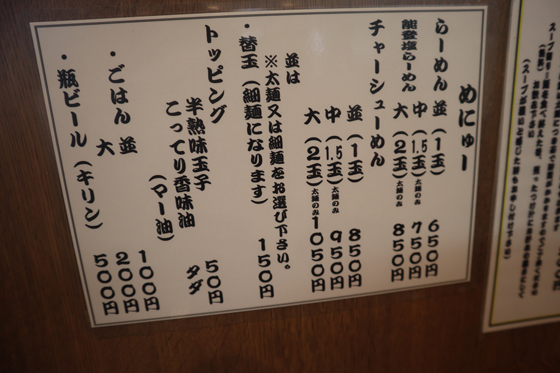 めにゅー
らーめん 並(1玉) 650円
能登塩らーめん 中(1.5玉)太麺のみ 750円
大(2玉)太麺のみ 850円
チャーシューめん
並(1玉) 850円
中(1.5玉)太麺のみ 950円
大(2玉)太麺のみ 1050円
並は
※太麺又は細麺をお選び下さい。
・替玉(細麺になります) 150円
トッピング
半熟味玉子 50円
こってり香味油 タダ
(マー油)
・ごはん 並 100円
大 200円
・瓶ビール(キリン) 500円